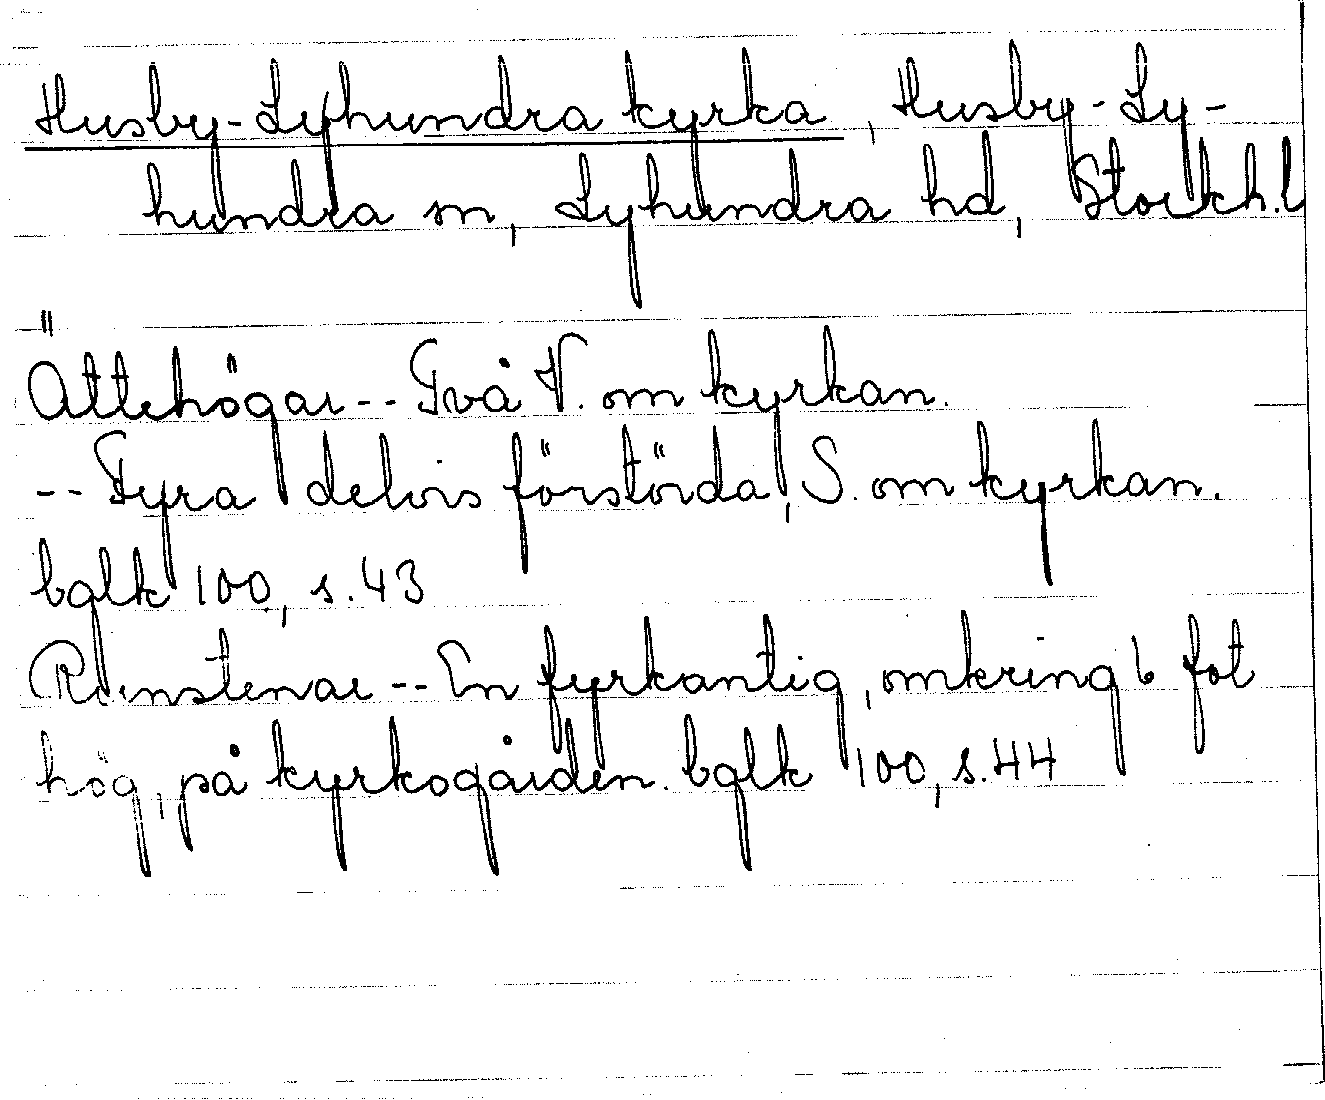 Husby-Lyhundra kyrka, Husby-Ly-
hundra sn, Lyhundra hd, Stockh.l
Ättehögar -- Två V. om kyrkan.
-- Fyra delvis förstörda, S. om kyrkan.
bqlk 100, s. 43
Runstenar -- En fyrkantig, omkring 6 fot
hög, på kyrkogården. bqlk 100, s. 44